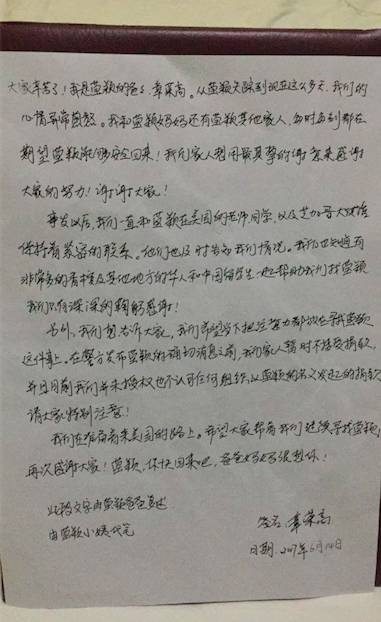 大家辛苦了！我是莹颖的爸爸章荣高。从莹颖失踪到现在这么多天，我们的
心情异常煎熬。我和莹颖妈妈还有莹颖其他家人，每时每刻都在
期望莹颖能够安全回来！我们家人想用最真挚的谢意来感谢
大家的努力！谢谢大家！
事发以后，我们一直和莹颖在美国的老师同学，以及芝加哥大使馆
保持着紧密的联系。他们也及时告知我们情况。我们也知道有
非常多的香槟及其他地方的华人和中国留学生一起帮助我们找莹颖
我们只有深深的鞠躬感谢！
另外，我们想告诉大家，我们希望当下把注意力都放在寻找莹颖
这件事上，在警方发布莹颖的确切消息之前，我们家人暂时不接受捐款，
并且目前我们并未授权也不认可任何组织以莹颖的名义发起的捐款
请大家特别注意！
我们正在准备来美国的路上。希望大家帮着我们继续寻找莹颖！
再次感谢大家！莹颖，你快回来吧，爸爸妈妈很想你！
此段文字由莹颖爸爸口述
由莹颖小姨代笔
签名：章荣高
日期：2017年6月14日